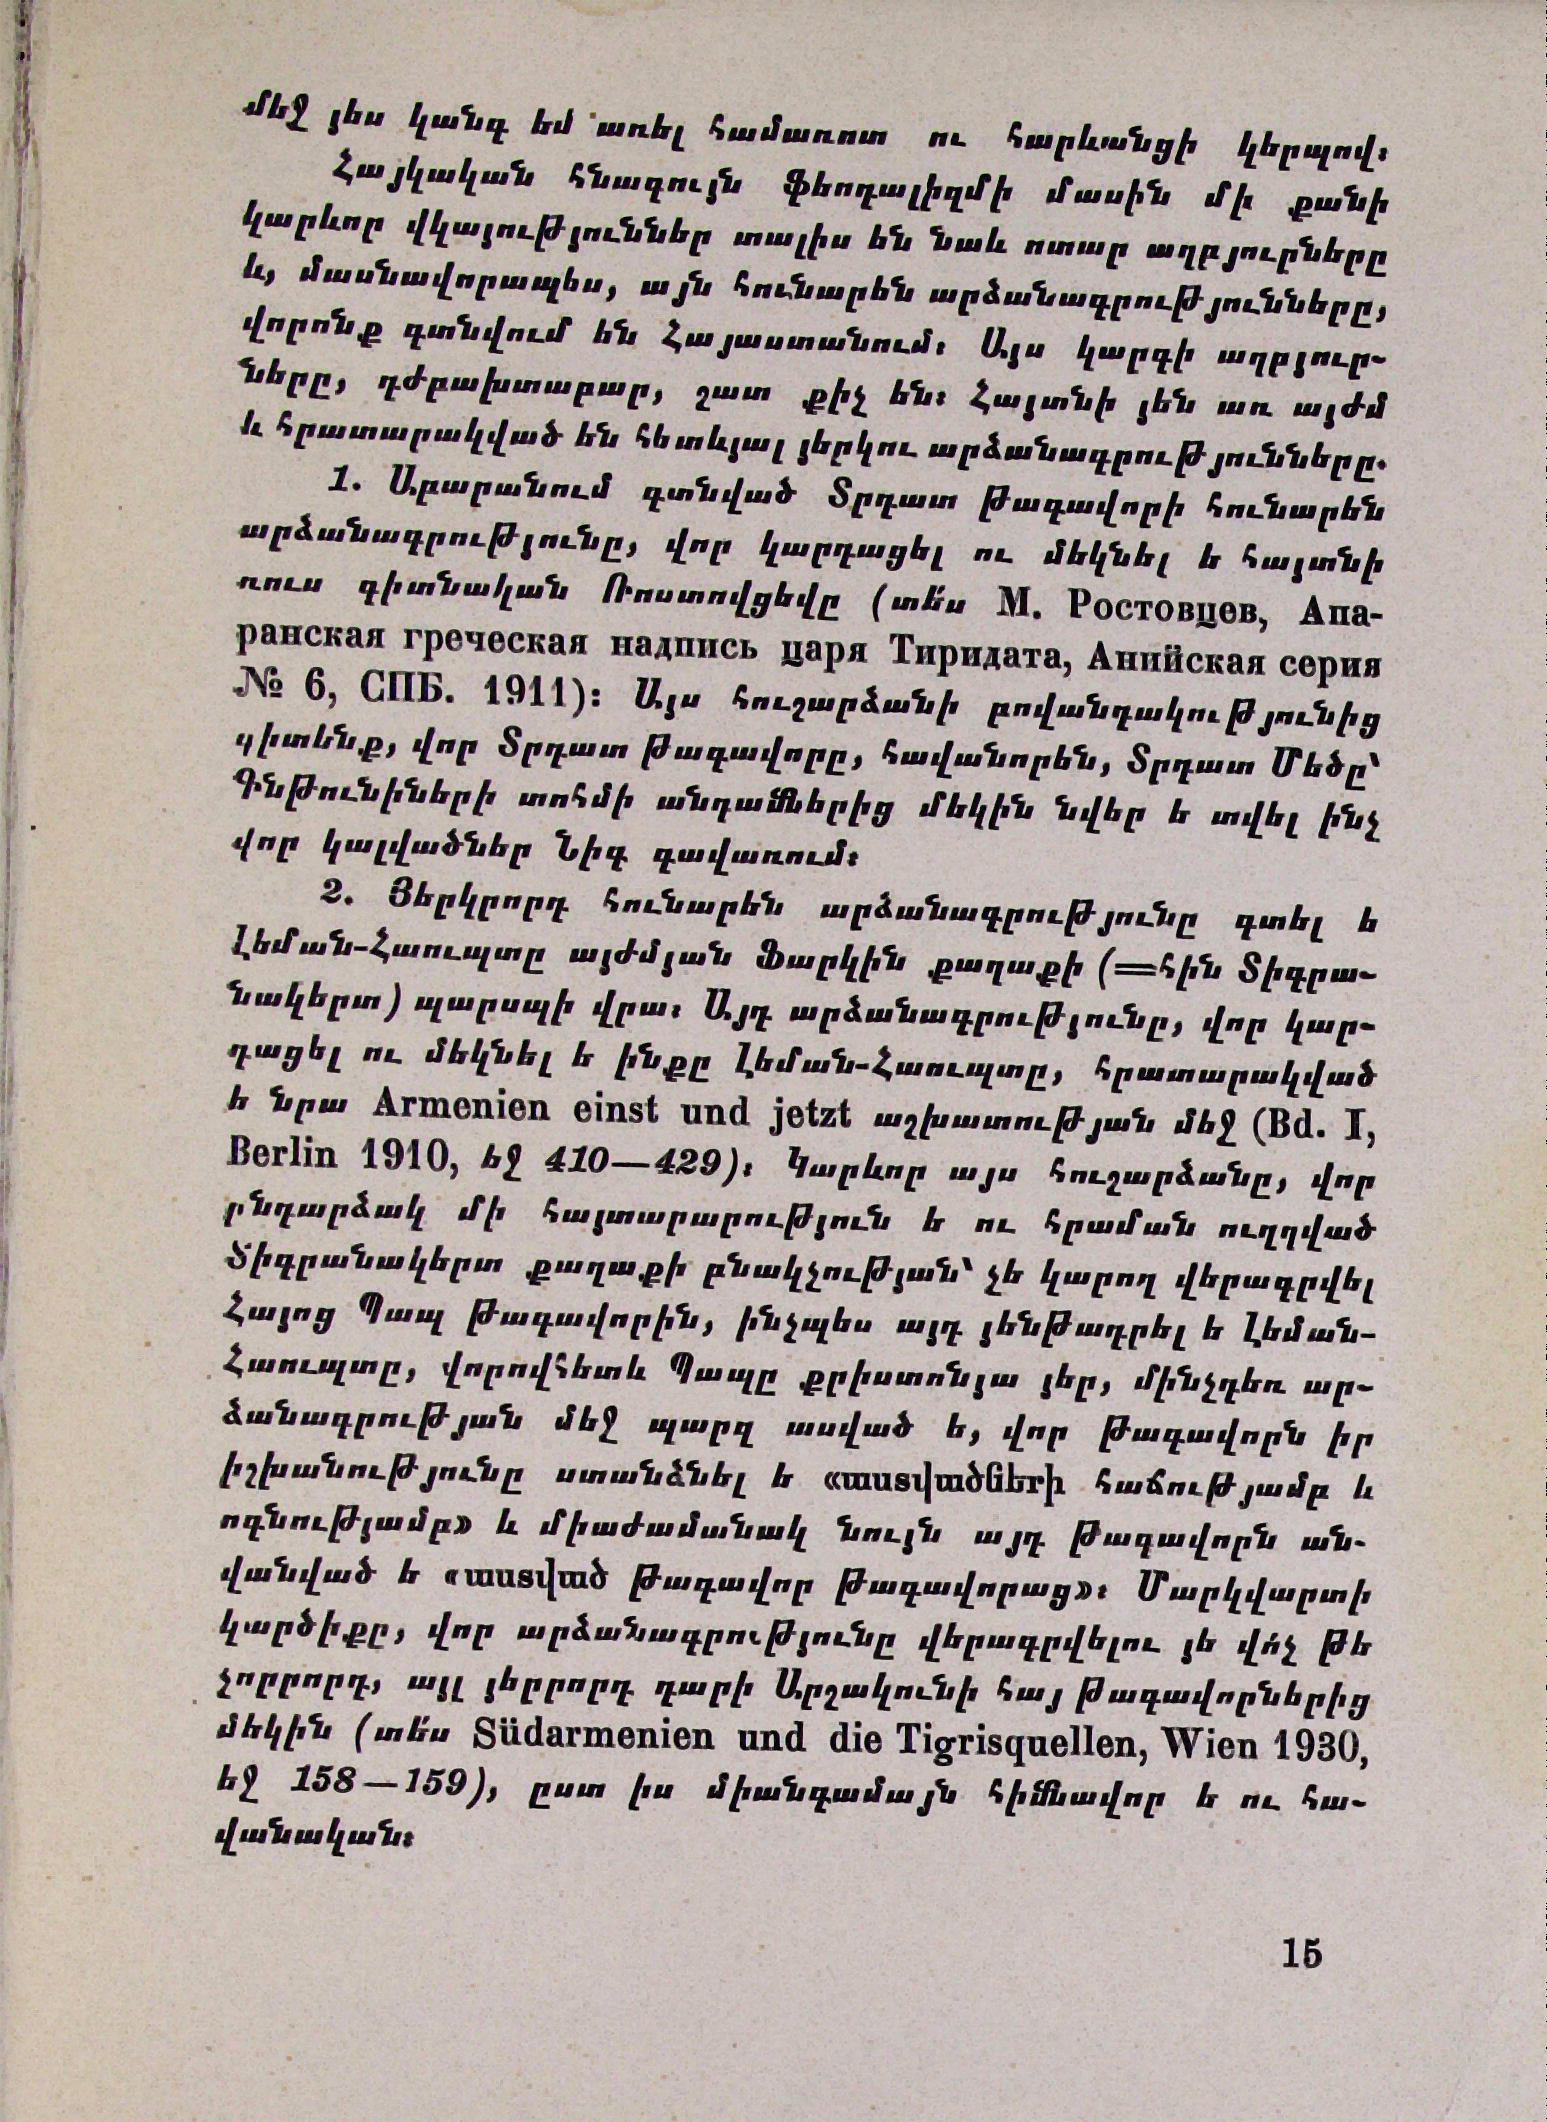 մեջ յես կանգ եմ առել համառոտ ու հարևանցի կերպով։
Հայկական հնագույն ֆեոդալիզմի մասին մի քանի
կարևոր վկայություններ տալիս են նաև ոտար աղբյուրները
և, մասնավորապես, այն հունարեն արձանագրությունները,
վորոնք գտնվում են Հայաստանում։ Այս կարգի աղբյուր-
ները, դժբախտաբար, շատ քիչ են։ Հայտնի յեն առ այժմ
և հրատարակված են հետևյալ յերկու արձանագրությունները.
1. Ապարանում գտնված Տրդատ թագավորի հունարեն
արձանագրությունը, վոր կարդացել ու մեկնել ե հայտնի
ռուս գիտնական Ռոստովցեվը (տե՛ս М. Ростовцев, Апа-
ранская греческая надпись царя Тиридата, Анийская серия
№ 6, СПБ. 1911)։ Այս հուշարձանի բովանդակությունից
գիտենք, վոր Տրդատ թագավորը, հավանորեն, Տրդատ Մեծը՝
Գնթունիների տոհմի անդամներից մեկին նվեր ե տվել ինչ
վոր կալվածներ Նիգ գավառում։
2. Յերկրորդ հունարեն արձանագրությունը գտել ե
Լեման-Հաուպտը այժմյան Ֆարկին քաղաքի (=հին Տիգրա-
նակերտ) պարսպի վրա։ Այդ արձանագրությունը, վոր կար-
դացել ու մեկնել ե ինքը Լեման-Հաուպտը, հրատարակված
ե նրա Armenien einst und jetzt աշխատության մեջ (Bd. I,
Berlin 1910, եջ 410—429)։ Կարևոր այս հուշարձանը, վոր
ընդարձակ մի հայտարարություն ե ու հրաման ուղղված
Տիգրանակերտ քաղաքի բնակչության՝ չե կարող վերագրվել
Հայոց Պապ թագավորին, ինչպես այդ յենթադրել ե Լեման-
Հաուպտը, վորովհետև Պապը քրիստոնյա յեր, մինչդեռ ար-
ձանագրության մեջ պարզ ասված ե, վոր թագավորն իր
իշխանությունը ստանձնել ե «աստվածների հաճությամբ և
ոգնությամբ» և միաժամանակ նույն այդ թագավորն ան-
վանված ե «աստված թագավոր թագավորաց»։ Մարկվարտի
կարծիքը, վոր արձանագրությունը վերագրվելու յե վո՛չ թե
չորրորդ, այլ յերրորդ դարի Արշակունի հայ թագավորներից
մեկին (տե՛ս Südarmenien und die Tigrisquellen, Wien 1930,
եջ 158—159), ըստ իս միանգամայն հիմնավոր ե ու հա-
վանական։
15